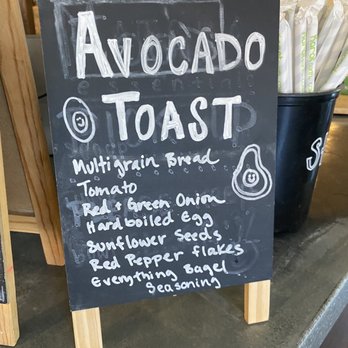 AVOCADO
TOAST
Multigrain Bread
Tomato
Red & Green Onion
Hard boiled Egg
Sunflower Seeds
Red Pepper flakes
Everything Bagel
Seasoning